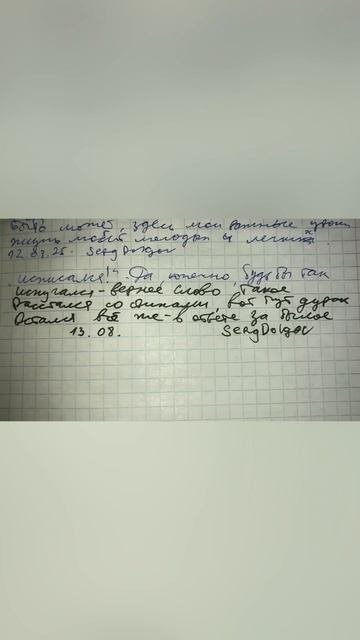 Быть может, здесь мои важные уроки
жизнь любит молодых и легких.
12.08.25. SergDolgov
„исписался!" Да конечно, будь бы так
испугался - верное слово, такое
Расстался со стихами, вот тут дурак
Остался всё же - в ответе за былое
13.08. SergDolgov